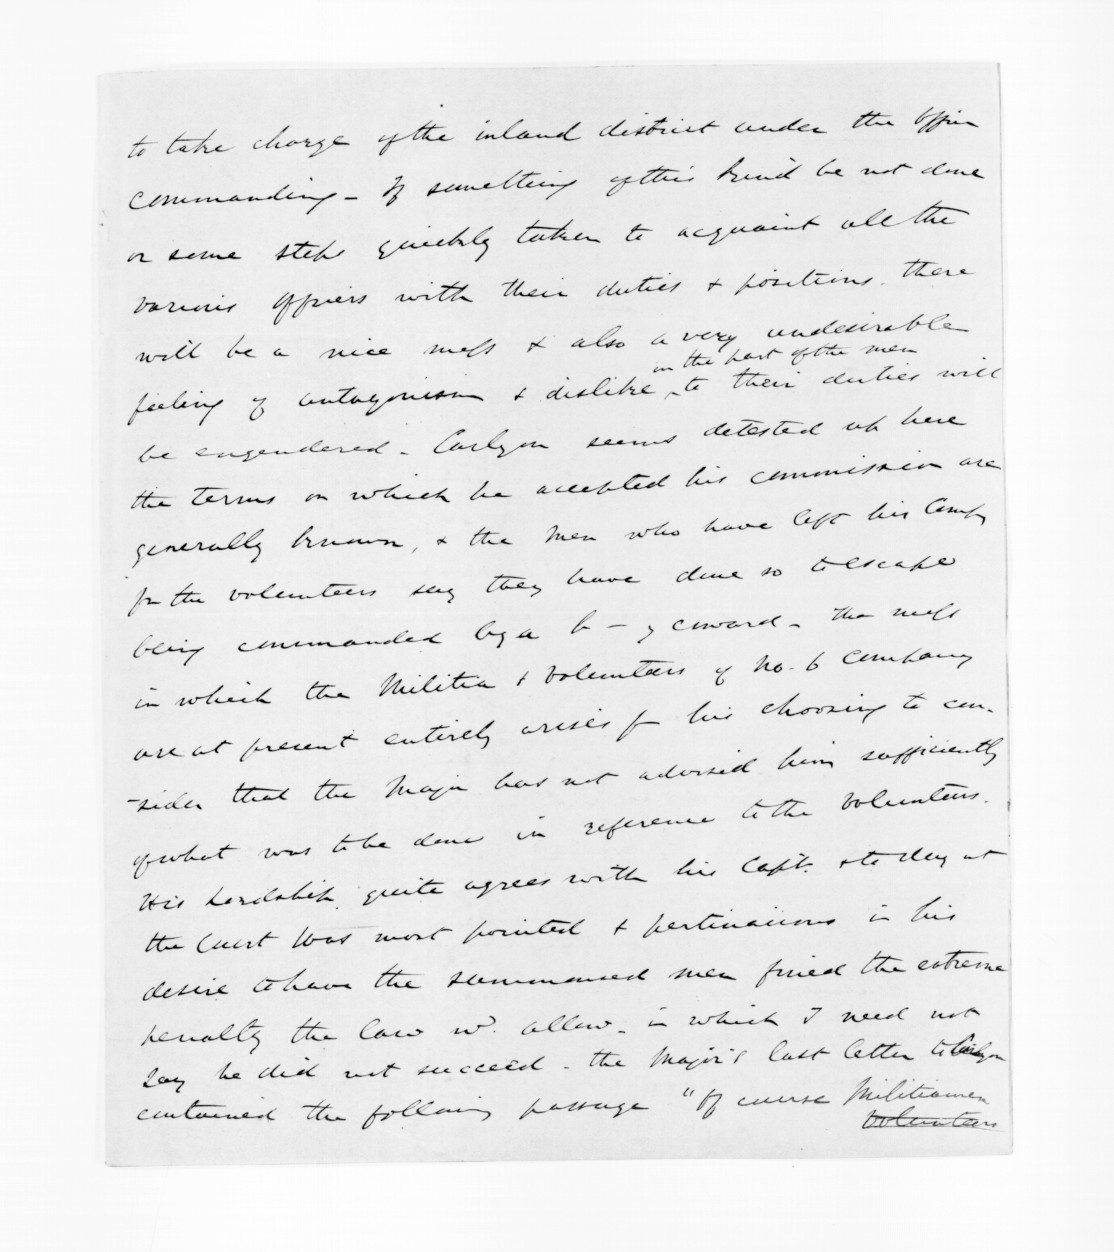 to take charge of the inland district under the Officer
commanding - If something of this kind be not done
or some steps quickly taken to acquaint all the
various Officers with their duties & positions. there
will be a nice mess & also a very undesirable
on the part of the men
feeling of antagonism & dislike to their duties will
be engendered - Carlyon seems detested up here
the terms on which he accepted his commission are
generally known, & the men who have left his Compy
for the volunteers say they have done so to escape
being commanded by a b - y coward - The mess
in which the Militia & Volunteers of No. 6 company
are at present entirely arises fm his choosing to con-
-sider that the Major has not advised him sufficiently
of what was to be done in reference to the Volunteers.
His Lordship quite agrees with his Capt. & to day at
the Court was most pointed & pertinacious in his
desire to have the summonsed men fined the extreme
penalty the law wd. allow - in which I need not
say he did not succeed - the Major's last letter to Carlyon
contained the following passage "Of course Militiamen
Volunteers